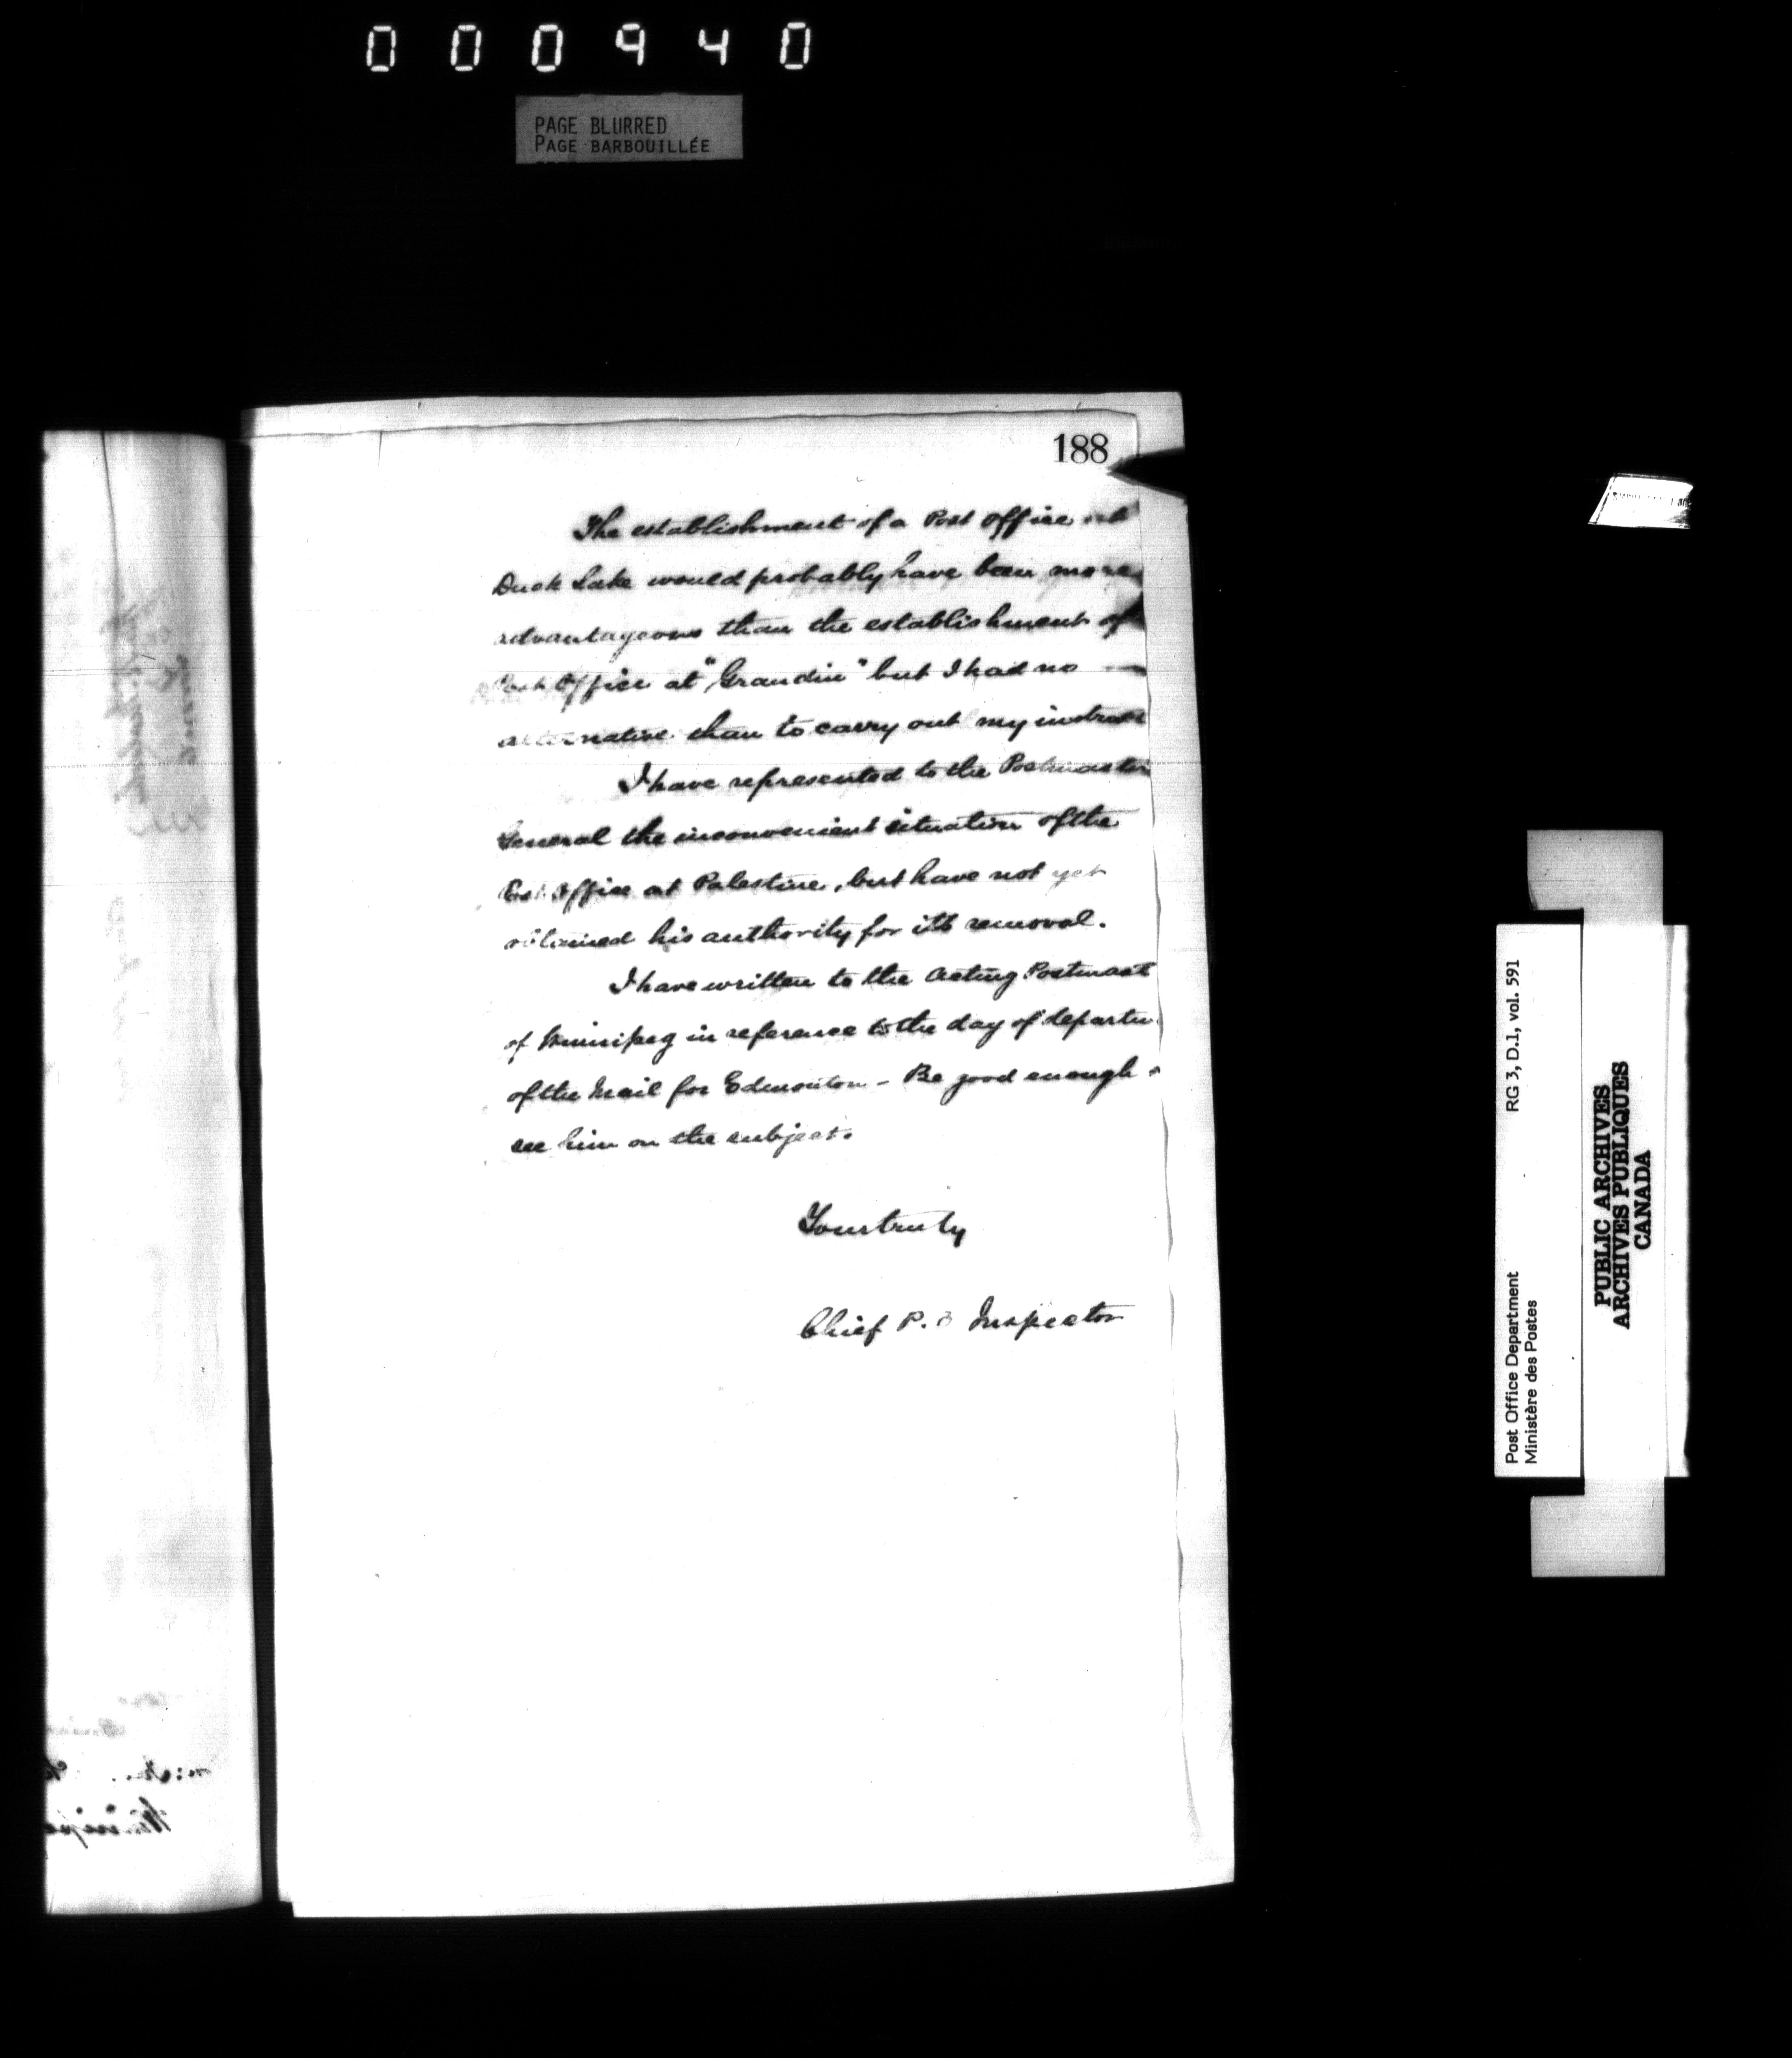 000940
PAGE BLURRED
PAGE BARBOUILLÉE
188
The establishment of a Post Office at
Duck Lake would probably have been more
advantageous than the establishment of
Post Office at "Grandin" but I had no
alternative than to carry out my instruct
I have represented to the Postmaster
General the inconvenient situation of the
Post Office at Palestine, but have not yet
obtained his authority for its removal.
I have written to the Acting Postmast
of Winnipeg in reference to the day of departu
of the Mail for Edmonton - Be good enough
see him on the subject.
Yours truly
Chief P. O Inspector
Post Office Department RG 3, D.1, vol. 591
Ministère des Postes
PUBLIC ARCHIVES
ARCHIVES PUBLIQUES
CANADA